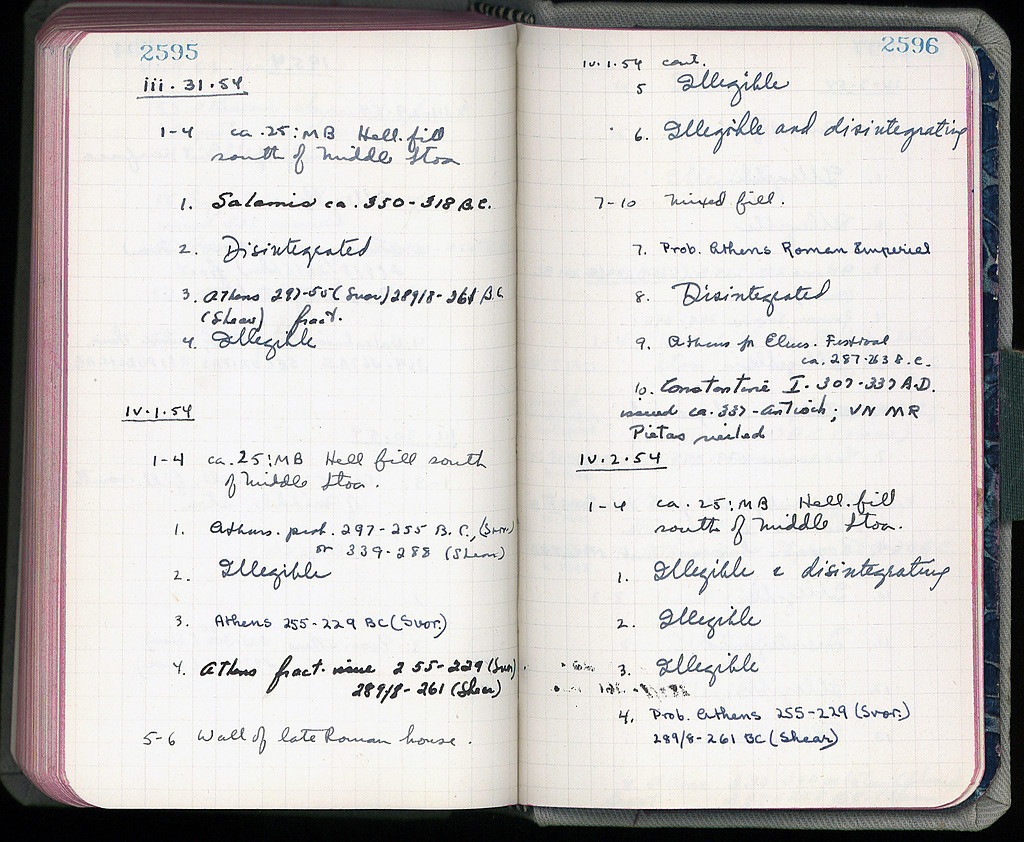 2595
iii.31.54
1-4 ca.25:MB Hell. fill
south of Middle Stoa
1. Salamis ca. 350-318 B.C.
2. Disintegrated
3. Athens 297-55 (Svor.) 289/8-261 B.C.
(Shear) fract.
4. Illegible
IV.1.54
1-4 ca.25:MB Hell fill south
of Middle Stoa.
1. Athens. prob. 297-255 B.C., (Svor.)
or 339-288 (Shear)
2. Illegible
3. Athens 255-229 BC (Svor.)
4. Athens fract. issue 255-229 (Svor)
289/8-261 (Shear)
5-6 Wall of late Roman house.
2596
IV.1.54 cont.
5 Illegible
6. Illegible and disintegrating
7-10 Mixed fill.
7. Prob. Athens Roman Imperial
8. Disintegrated
9. Athens for Eleus. Festival
ca. 287-263 B.C.
10. Constantine I. 307-337 A.D.
issued ca. 337-Antioch; VN MR
Pietas veiled
IV.2.54
1-4 ca.25:MB Hell. fill
south of Middle Stoa.
1. Illegible & disintegrating
2. Illegible
3. Illegible
4. Prob. Athens 255-229 (Svor.)
289/8-261 BC (Shear)